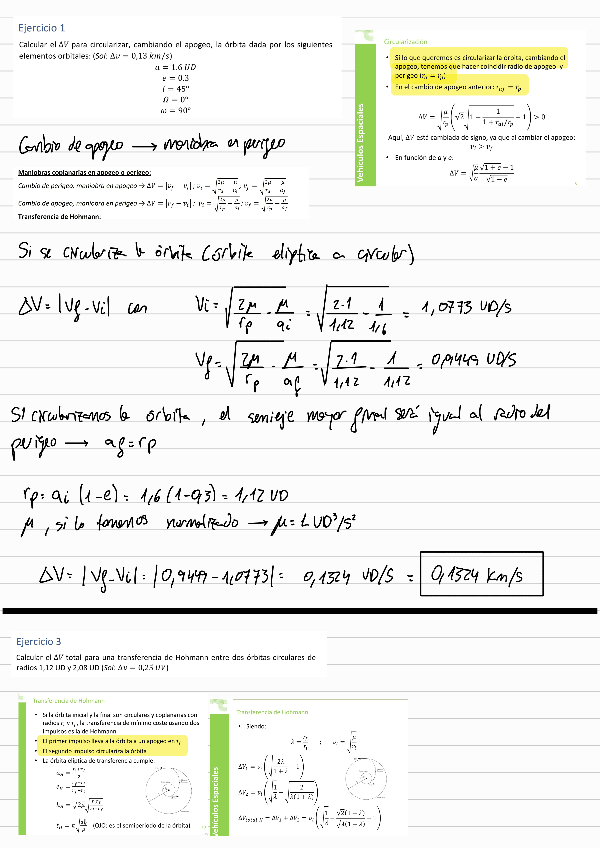 Ejercicio 1
Calcular el ΔV para circularizar, cambiando el apogeo, la órbita dada por los siguientes
elementos orbitales: (Sol: Δv = 0,13 km/s)
a = 1.6 UD
e = 0.3
i = 45º
Ω = 0º
ω = 90º
Circularización
• Si lo que queremos es circularizar la órbita, cambiando el
apogeo, tenemos que hacer coincidir radio de apogeo y
perigeo
• En el cambio de apogeo anterior:
Aquí, ΔV está cambiada de signo, ya que al cambiar el apogeo:
• En función de a y e:
Vehículos Espaciales
Cambio de apogeo → maniobra en perigeo
Maniobras coplanarias en apogeo o perigeo:
Cambio de perigeo, maniobra en apogeo → ΔV = |vf − vi|
Cambio de apogeo, maniobra en perigeo → ΔV = |vf − vi|
Transferencia de Hohmann:
Si se circulariza la órbita (órbita elíptica a circular)
ΔV = |Vf - Vi| con Vi = √(2μ/rp - μ/ai) = √(2·1/1,12 - 1/1,6) = 1,0773 UD/s
Vf = √(2μ/rp - μ/af) = √(2·1/1,12 - 1/1,12) = 0,9449 UD/s
Si circularizamos la órbita, el semieje mayor final será igual al radio del
perigeo → af = rp
rp = ai (1-e) = 1,6 (1-0,3) = 1,12 UD
μ, si lo tomamos normalizado → μ = 1 UD³/s²
ΔV = |Vf - Vi| = |0,9449 - 1,0773| = 0,1324 UD/s = 0,1324 km/s
Ejercicio 3
Calcular el ΔV total para una transferencia de Hohmann entre dos órbitas circulares de
radios 1,12 UD y 2,08 UD (Sol: Δv = 0,25 UV)
Transferencia de Hohmann
• Si la órbita inicial y la final son circulares y coplanarias con
impulsos es la de Hohmann
• El primer impulso lleva a la órbita a un apogeo en
• El segundo impulso circulariza la órbita
• La órbita elíptica de transferencia cumple:
(OJO: es el semiperiodo de la órbita)
Transferencia de Hohmann
• Siendo:
Vehículos Espaciales